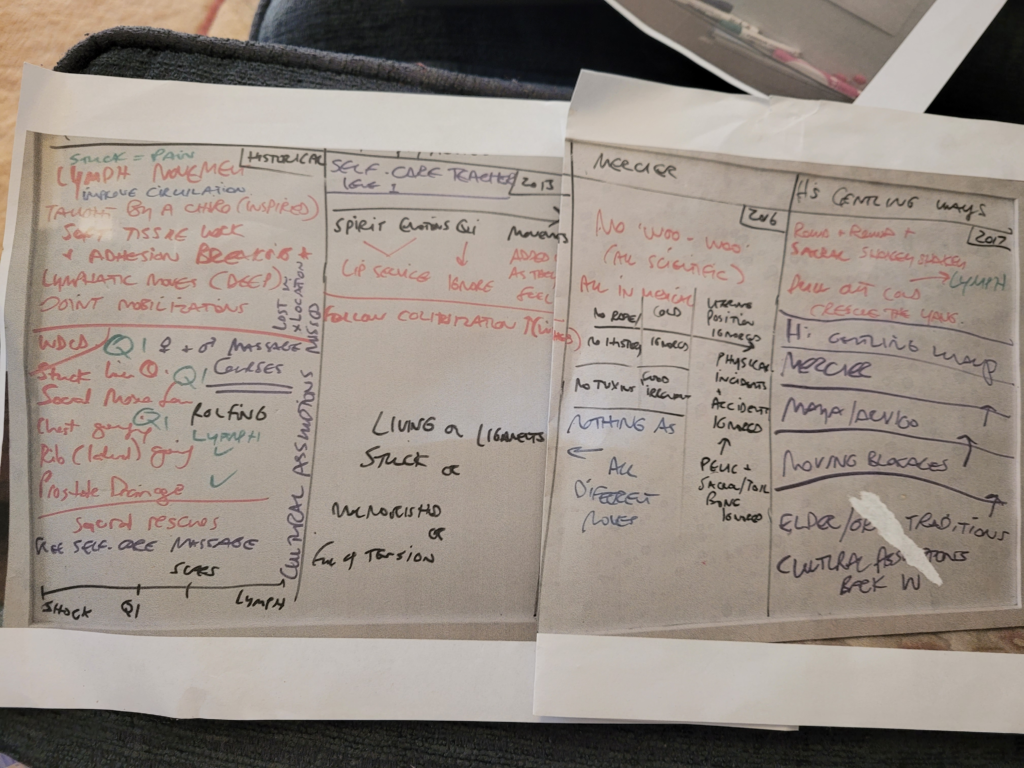 STUCK = PAIN
HISTORICAL
LYMPH MOVEMENT
IMPROVE CIRCULATION
TAUGHT BY A CHIRO (INSPIRED)
SOFT TISSUE WORK
+ ADHESION BREAKING +
LYMPHATIC MOVES (DEEP)
JOINT MOBILIZATIONS
LOST IN
LOCATION
CULTURAL ASSUMPTIONS MISSED
Q1 ♀ + ♂ MASSAGE
COURSES
Q1
Q1 ROLFING
LYMPH
Rib (lateral) going ✓
Prostate Drainage ✓
Sacral rescues
SELF-CARE MASSAGE
SCARS
SHOCK Q1 LYMPH
SELF-CARE TEACHER
LEVEL 1
2013
SPIRIT EMOTIONS Qi MOVEMENTS
LIP SERVICE IGNORE ADDED
AS THEY
FEEL
FOLLOW COLINIZATION
LIVING or LIGAMENTS
STUCK or
or
Full of TENSION
MERCIER
2016
NO "WOO-WOO"
(ALL SCIENTIFIC)
ALL IN MEDICAL
NO HISTORY
COLD
IGNORED
FOOD
UTERINE
POSITION
IGNORED
PHYSICAL
INCIDENTS
ACCIDENT
IGNORED
↑
PELVIC +
SACRAL/TAIL
BONE
IGNORED
NOTHING AS
←
ALL
DIFFERENT
MOVES
Hi's CENTLING WAYS
2017
SACRAL SHAKEY SHAKEY
→ LYMPH
PULL OUT COLD
Hi CENTLING WAYS
MERCIER
MAYA/ARVIGO ↑
MOVING BLOCKAGES ↑
ELDER/ TRADITIONS
CULTURAL ASSUMPTIONS
BACK IN